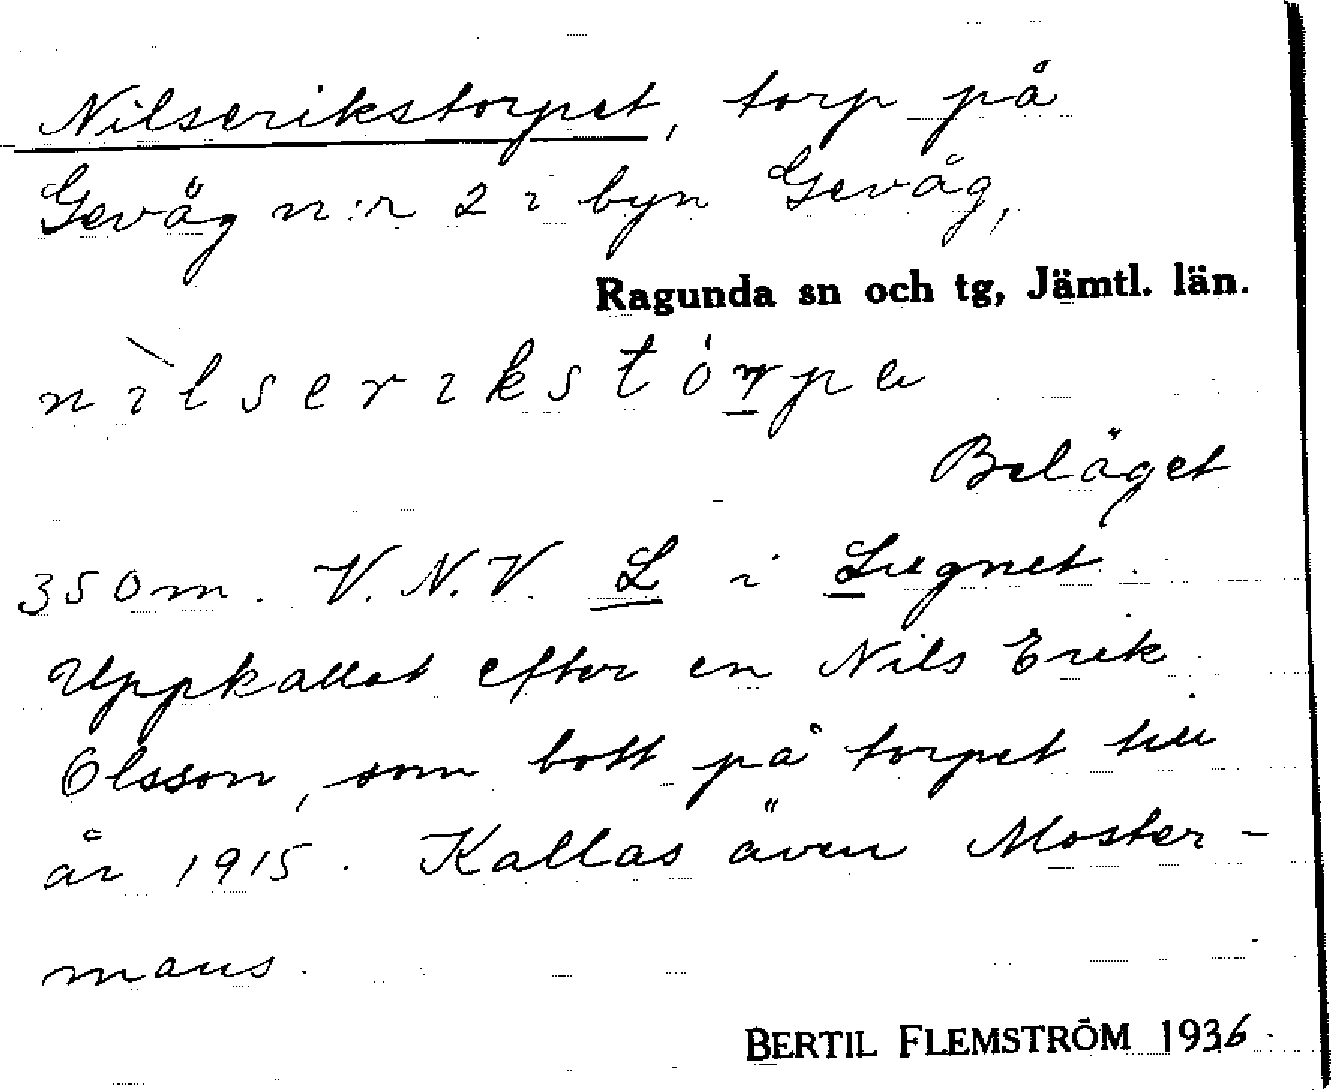 Nilserikstorpet, torp på
Gevåg n:r 2 i byn Gevåg,
Ragunda sn och tg, Jämtl. län.
nìlserikstórpe
Beläget
350 m. V.N.V. L i Lugnet.
Uppkallat efter en Nils Erik
Olsson, som bott på torpet till
år 1915. Kallas även Moster-
maus.
BERTIL FLEMSTRÖM 1936